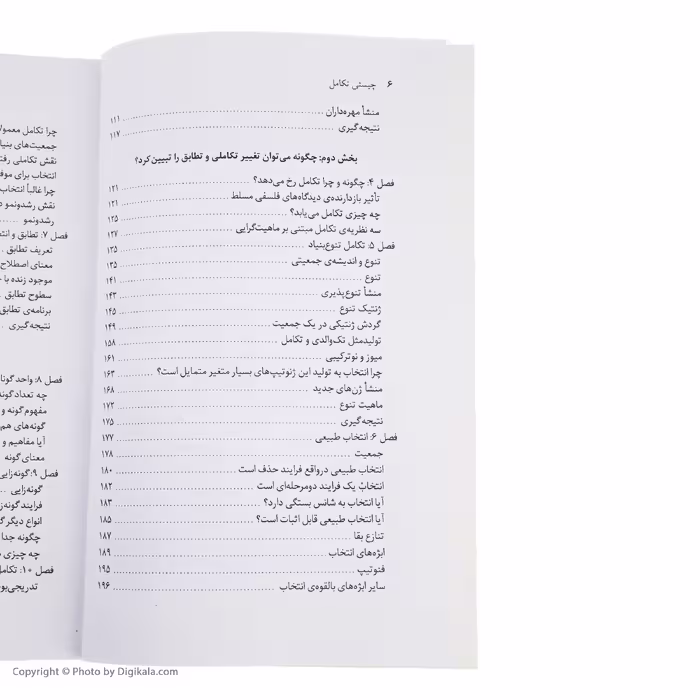 ۶ چیستی تکامل
منشأ مهره‌داران ۱۱۱
نتیجه‌گیری ۱۱۷
بخش دوم: چگونه می‌توان تغییر تکاملی و تطابق را تبیین کرد؟
فصل ۴: چگونه و چرا تکامل رخ می‌دهد؟ ۱۲۱
تأثیر بازدارنده‌ی دیدگاه‌های فلسفی مسلط ۱۲۱
چه چیزی تکامل می‌یابد؟ ۱۲۵
سه نظریه‌ی تکامل مبتنی بر ماهیت‌گرایی ۱۲۷
فصل ۵: تکامل تنوع‌بنیاد ۱۳۵
تنوع و اندیشه‌ی جمعیتی ۱۳۵
تنوع ۱۴۱
منشأ تنوع‌پذیری ۱۴۳
ژنتیک تنوع ۱۴۵
گردش ژنتیکی در یک جمعیت ۱۴۹
تولیدمثل تک‌والدی و تکامل ۱۵۸
میوز و نوترکیبی ۱۶۱
چرا انتخاب به تولید این ژنوتیپ‌های بسیار متغیر متمایل است؟ ۱۶۳
منشأ ژن‌های جدید ۱۶۸
ماهیت تنوع ۱۷۲
نتیجه‌گیری ۱۷۵
فصل ۶: انتخاب طبیعی ۱۷۷
جمعیت ۱۷۸
انتخاب طبیعی درواقع فرایند حذف است ۱۸۰
انتخاب یک فرایند دومرحله‌ای است ۱۸۲
آیا انتخاب به شانس بستگی دارد؟ ۱۸۳
آیا انتخاب طبیعی قابل اثبات است؟ ۱۸۵
تنازع بقا ۱۸۷
ابژه‌های انتخاب ۱۸۹
فنوتیپ ۱۹۵
سایر ابژه‌های بالقوه‌ی انتخاب ۱۹۶
چرا تکامل
جمعیت‌های
نقش تکاملی
انتخاب برای
چرا غالباً انتخاب
نقش رشدونمو
رشدونمو
فصل ۷: تطابق و
تعریف تطابق
معنای اصطلاح
موجود زنده با
سطوح تطابق
برنامه‌ی تطابق
نتیجه‌گیری
فصل ۸: واحد
چه تعداد
مفهوم گونه و
گونه‌های هم
آیا مفاهیم و
معنای گونه
فصل ۹: گونه‌زایی
گونه‌زایی
فرایند
انواع دیگر
چگونه جدا
چه چیزی
فصل ۱۰:
Copyright © Photo by Digikala.com